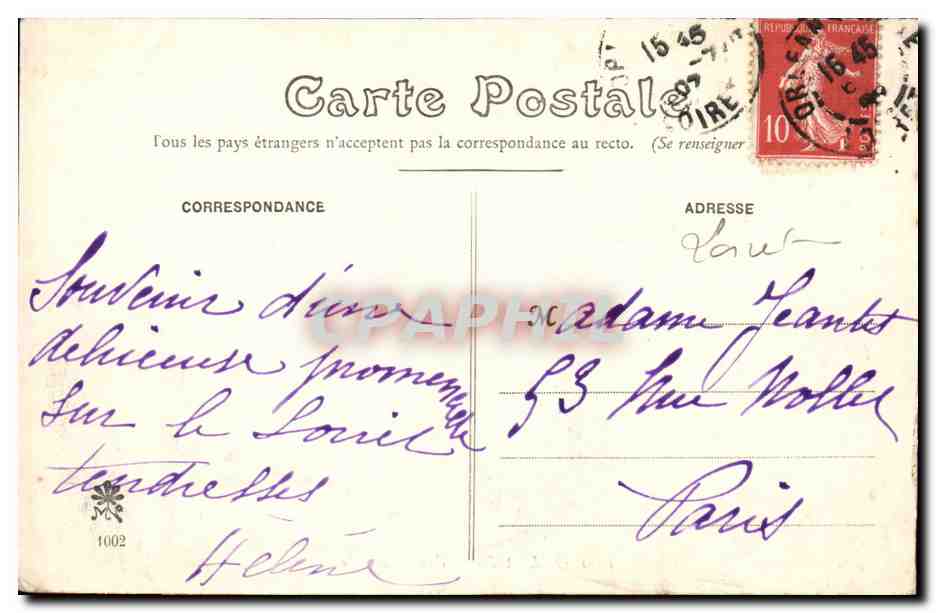 Carte Postale
Tous les pays étrangers n'acceptent pas la correspondance au recto. (Se renseigner
REPUBLIQUE FRANÇAISE
10
15 45
LOIRET
ORLEANS
15 45
CORRESPONDANCE
Souvenir d'une
delicieuse promenade
sur le Loiret
tendresses
Hélène
M
1002
ADRESSE
Loiret
Madame Jeantes
53 Rue Nollet
Paris
CPAPHIL